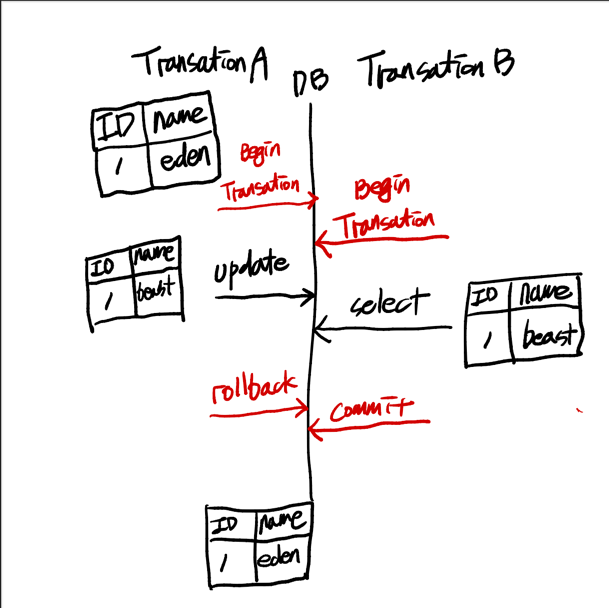 Transation A
DB
Transation B
ID name
1 eden
Begin
Transation
Begin
Transation
ID name
1 beast
update
select
ID name
1 beast
rollback
commit
ID name
1 eden